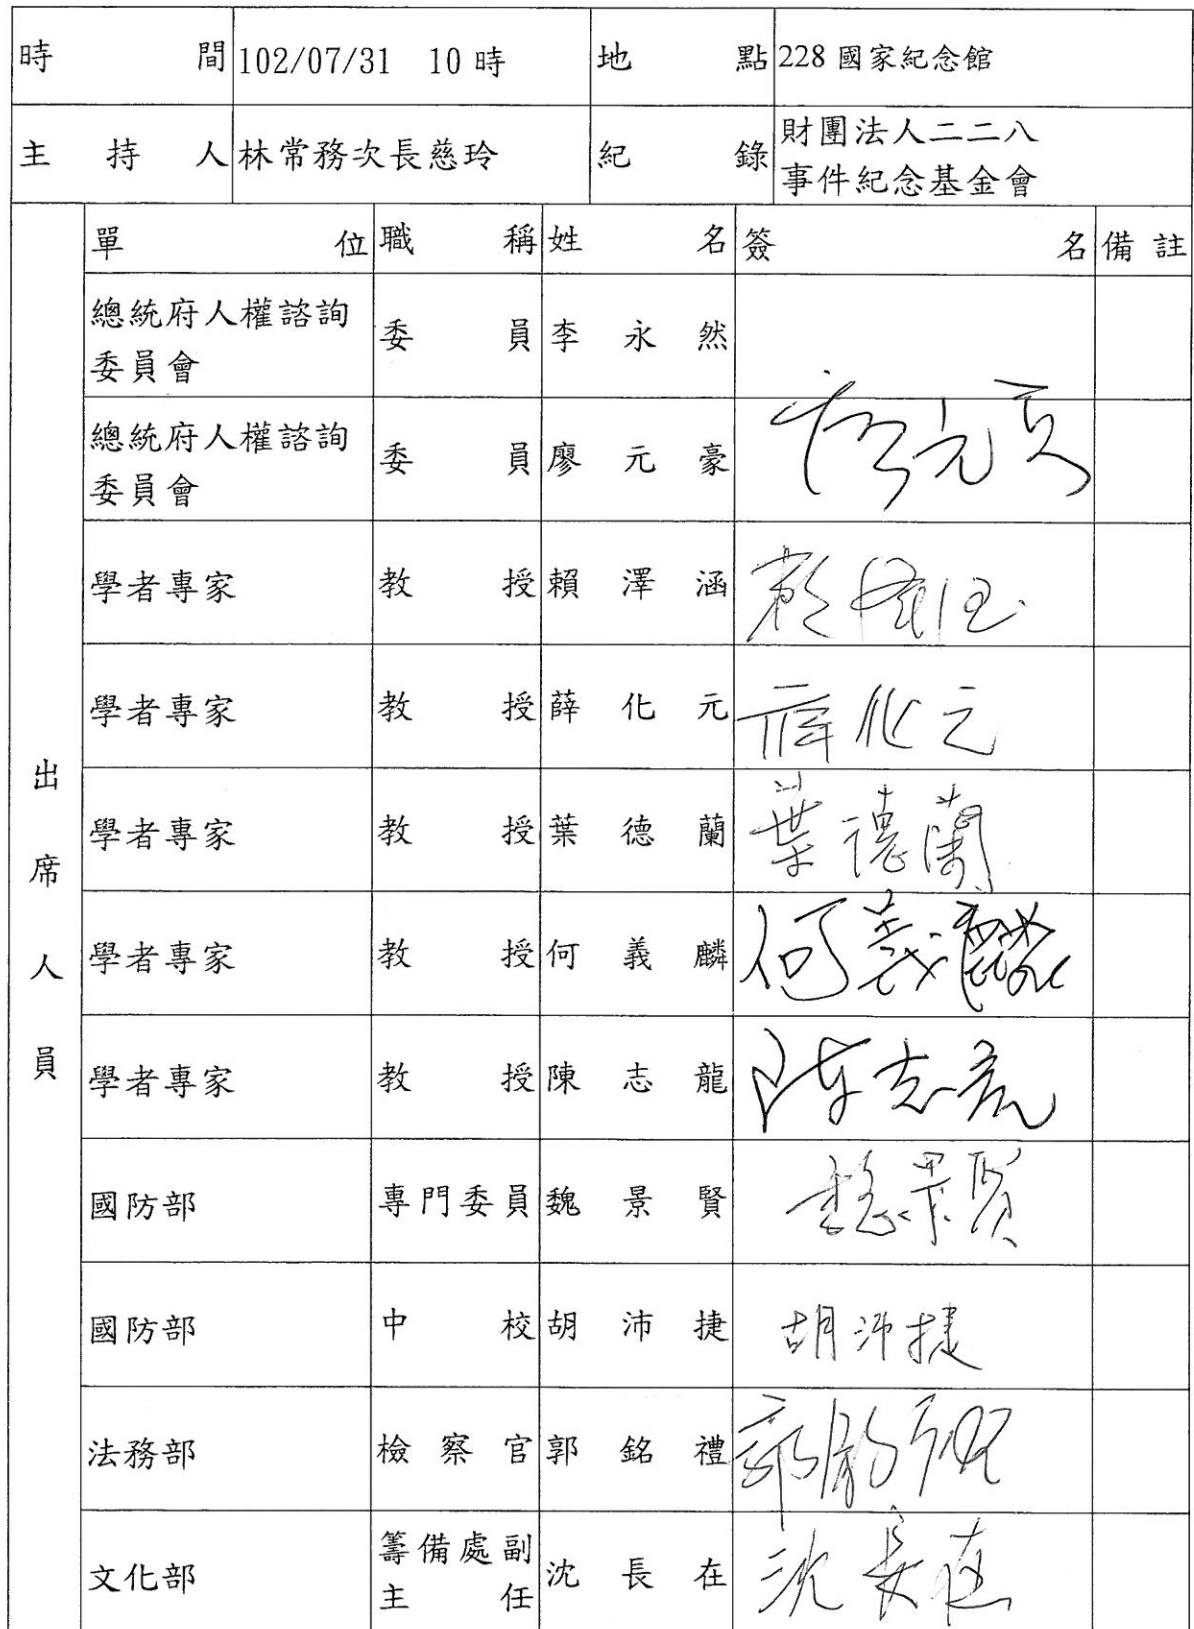 時間 102/07/31 10時 地點 228國家紀念館
主持人 林常務次長慈玲 紀錄 財團法人二二八
事件紀念基金會
出席人員
單位 職稱 姓名 簽名 備註
總統府人權諮詢
委員會 委員 李永然
總統府人權諮詢
委員會 委員 廖元豪
學者專家 教授 賴澤涵 賴澤涵
學者專家 教授 薛化元 薛化元
學者專家 教授 葉德蘭 葉德蘭
學者專家 教授 何義麟 何義麟
學者專家 教授 陳志龍 陳志龍
國防部 專門委員 魏景賢 魏景賢
國防部 中校 胡沛捷 胡沛捷
法務部 檢察官 郭銘禮
文化部 籌備處副
主任 沈長在 沈長在